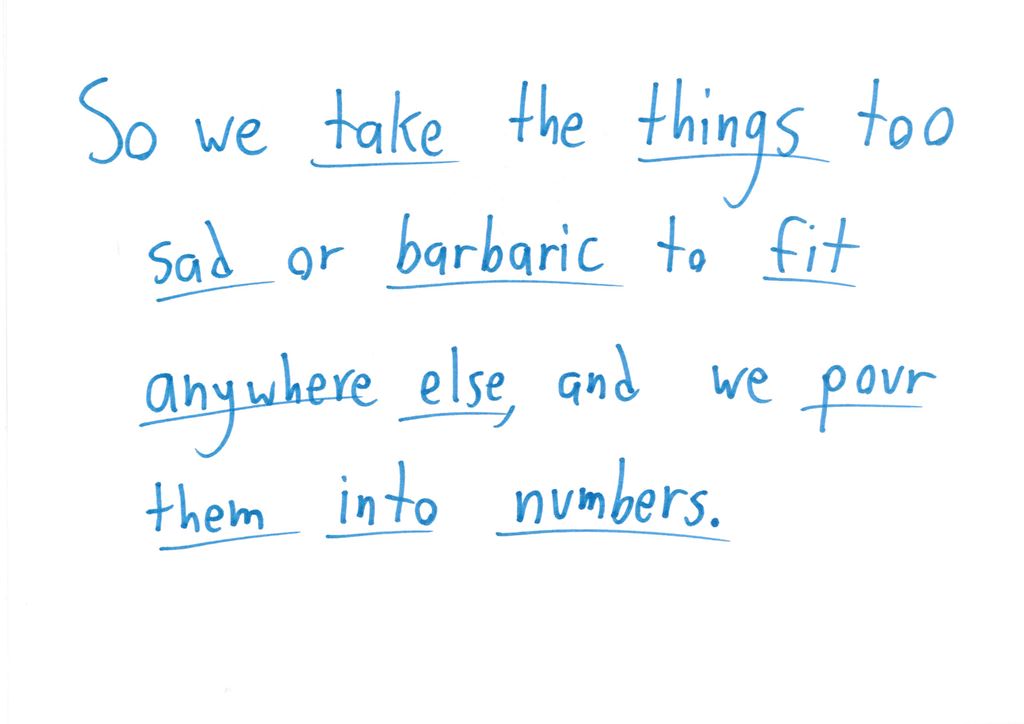 So we take the things too
sad or barbaric to fit
anywhere else, and we pour
them into numbers.